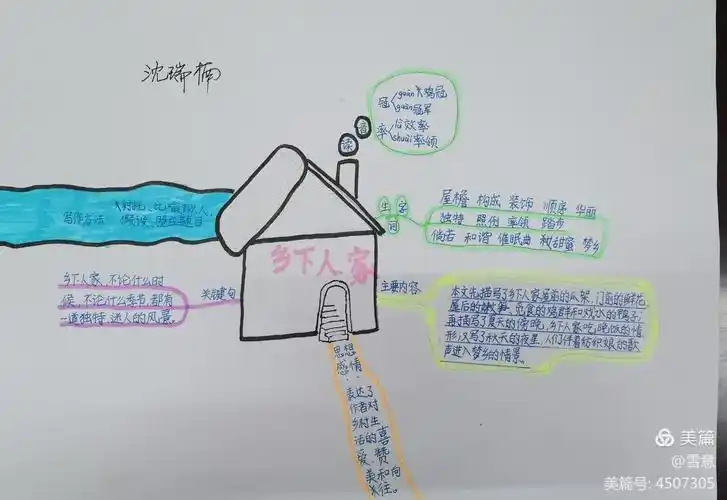 沈瑞楠
冠 guān 鸡冠
guàn 冠军
率 lǜ 效率
shuài 率领
读音
生字词
屋檐 构成 装饰 顺序 华丽
独特 照例 率领 踏步
倘若 和谐 催眠曲 甜蜜 梦乡
写作方法
对比、比喻、拟人、
乡下人家
乡下人家,不论什么时
候,不论什么季节,都有
一道独特、迷人的风景。
关键句
主要内容
本文先描写了乡下人家屋前的瓜架,门前的鲜花,
屋后的 觅食的鸡群和戏水的鸭子;
再描写了夏天的傍晚,乡下人家吃晚饭的情
形;又写了秋天的夜里,人们伴着纺织娘的歌
声进入梦乡的情景。
思想
感情:
表达了
作者对
乡村生
活的喜
爱、赞
美和向
往。
美篇
@雪意
美篇号: 4507305